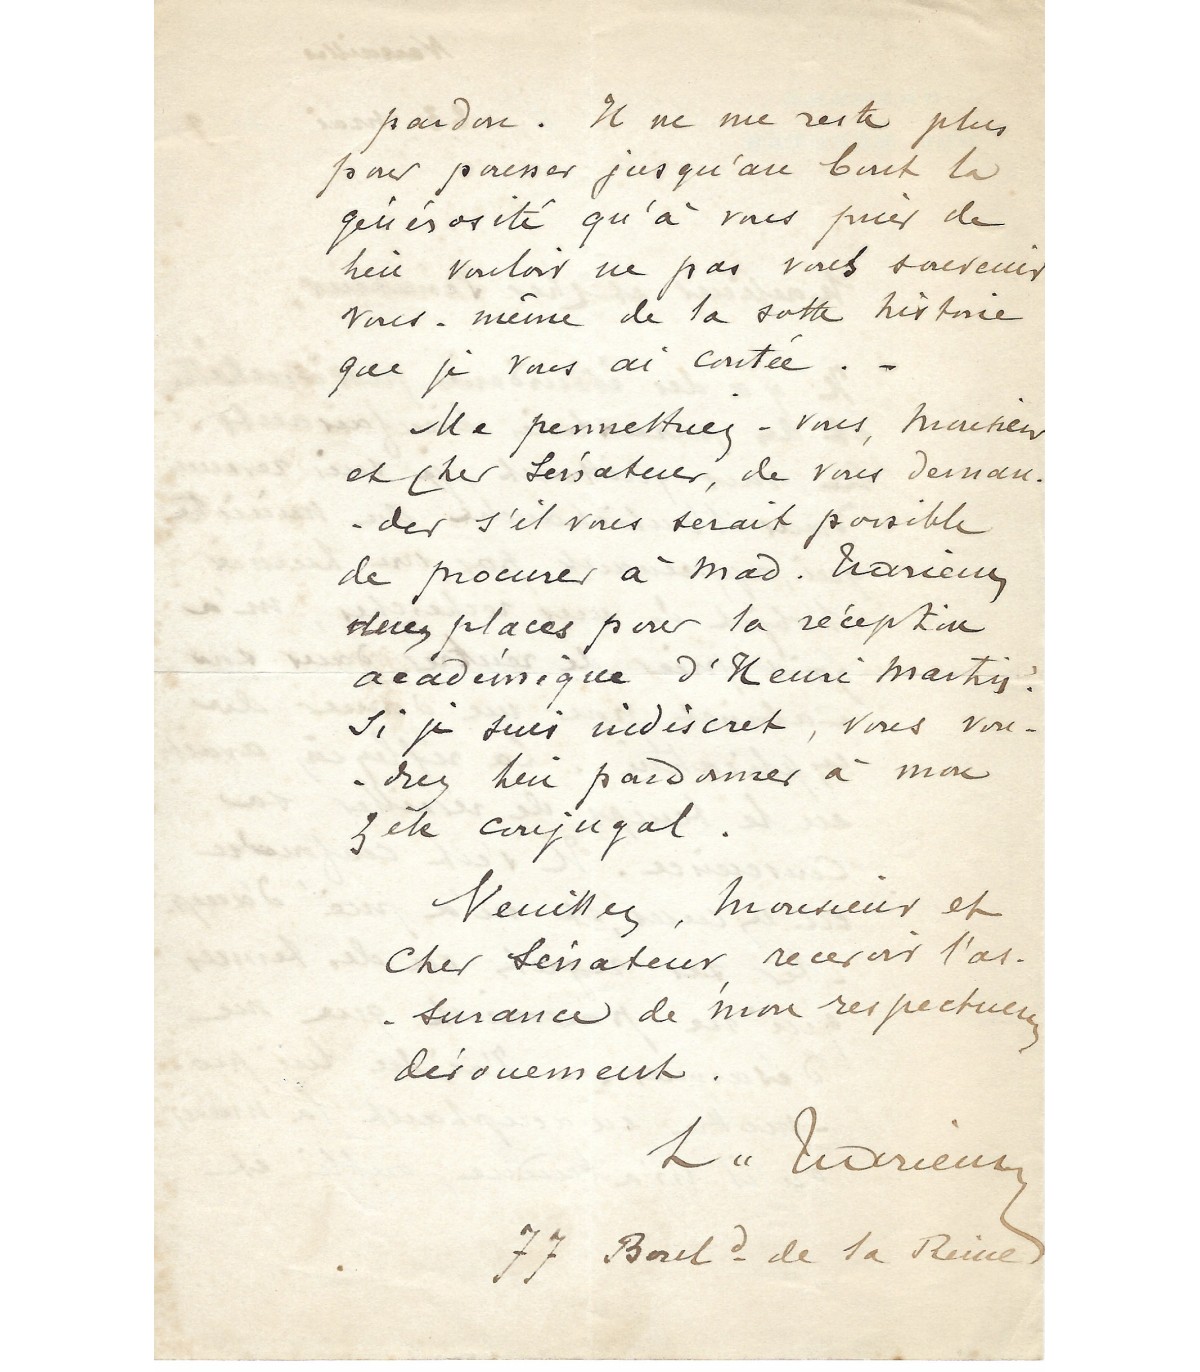 pardon. Il ne me reste plus
pour pousser jusqu'au bout la
générosité qu'à vous prier de
bien vouloir ne pas vous souvenir
vous-même de la sotte histoire
que je vous ai contée. -
Me permettriez-vous, Monsieur
et Cher Sénateur, de vous deman-
-der s'il vous serait possible
de procurer à Mad.
places pour la réception
académique d'Henri Martin?
Si je suis indiscret, vous vou-
-drez bien pardonner à mon
zèle conjugal.
Veuillez, Monsieur et
Cher Sénateur, recevoir l'as-
-surance de mon respectueux
dévouement.
L.
77 Boul.d de la Reine